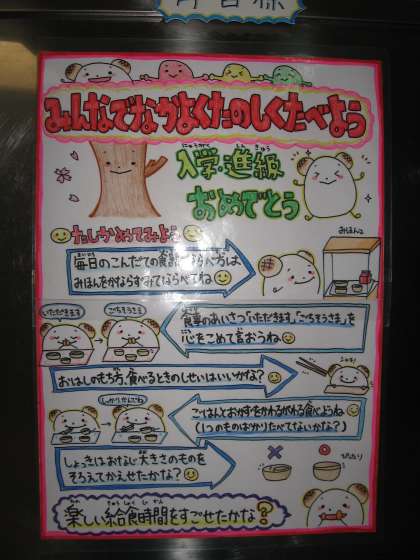 様
みんなでなかよくたのしくたべよう
にゅうがく しんきゅう
入学・進級
おめでとう
たしかめてみよう
みほん
毎日のこんだての食器のならべ方は
みほんをかならずみてならべてね
いただきます
ごちそうさま
食事のあいさつ「いただきます」「ごちそうさま」を
心をこめて言おうね
おはしのもち方、食べるときのしせいはいいかな?
しっかりかんでね
ごはんとおかずをかわるがわる食べようね
(1つのものばかりたべてないかな?)
しょっきはおなじ大きさのものを
そろえてかえせたかな?
× ○
ぴったり
楽しい給食時間をすごせたかな?